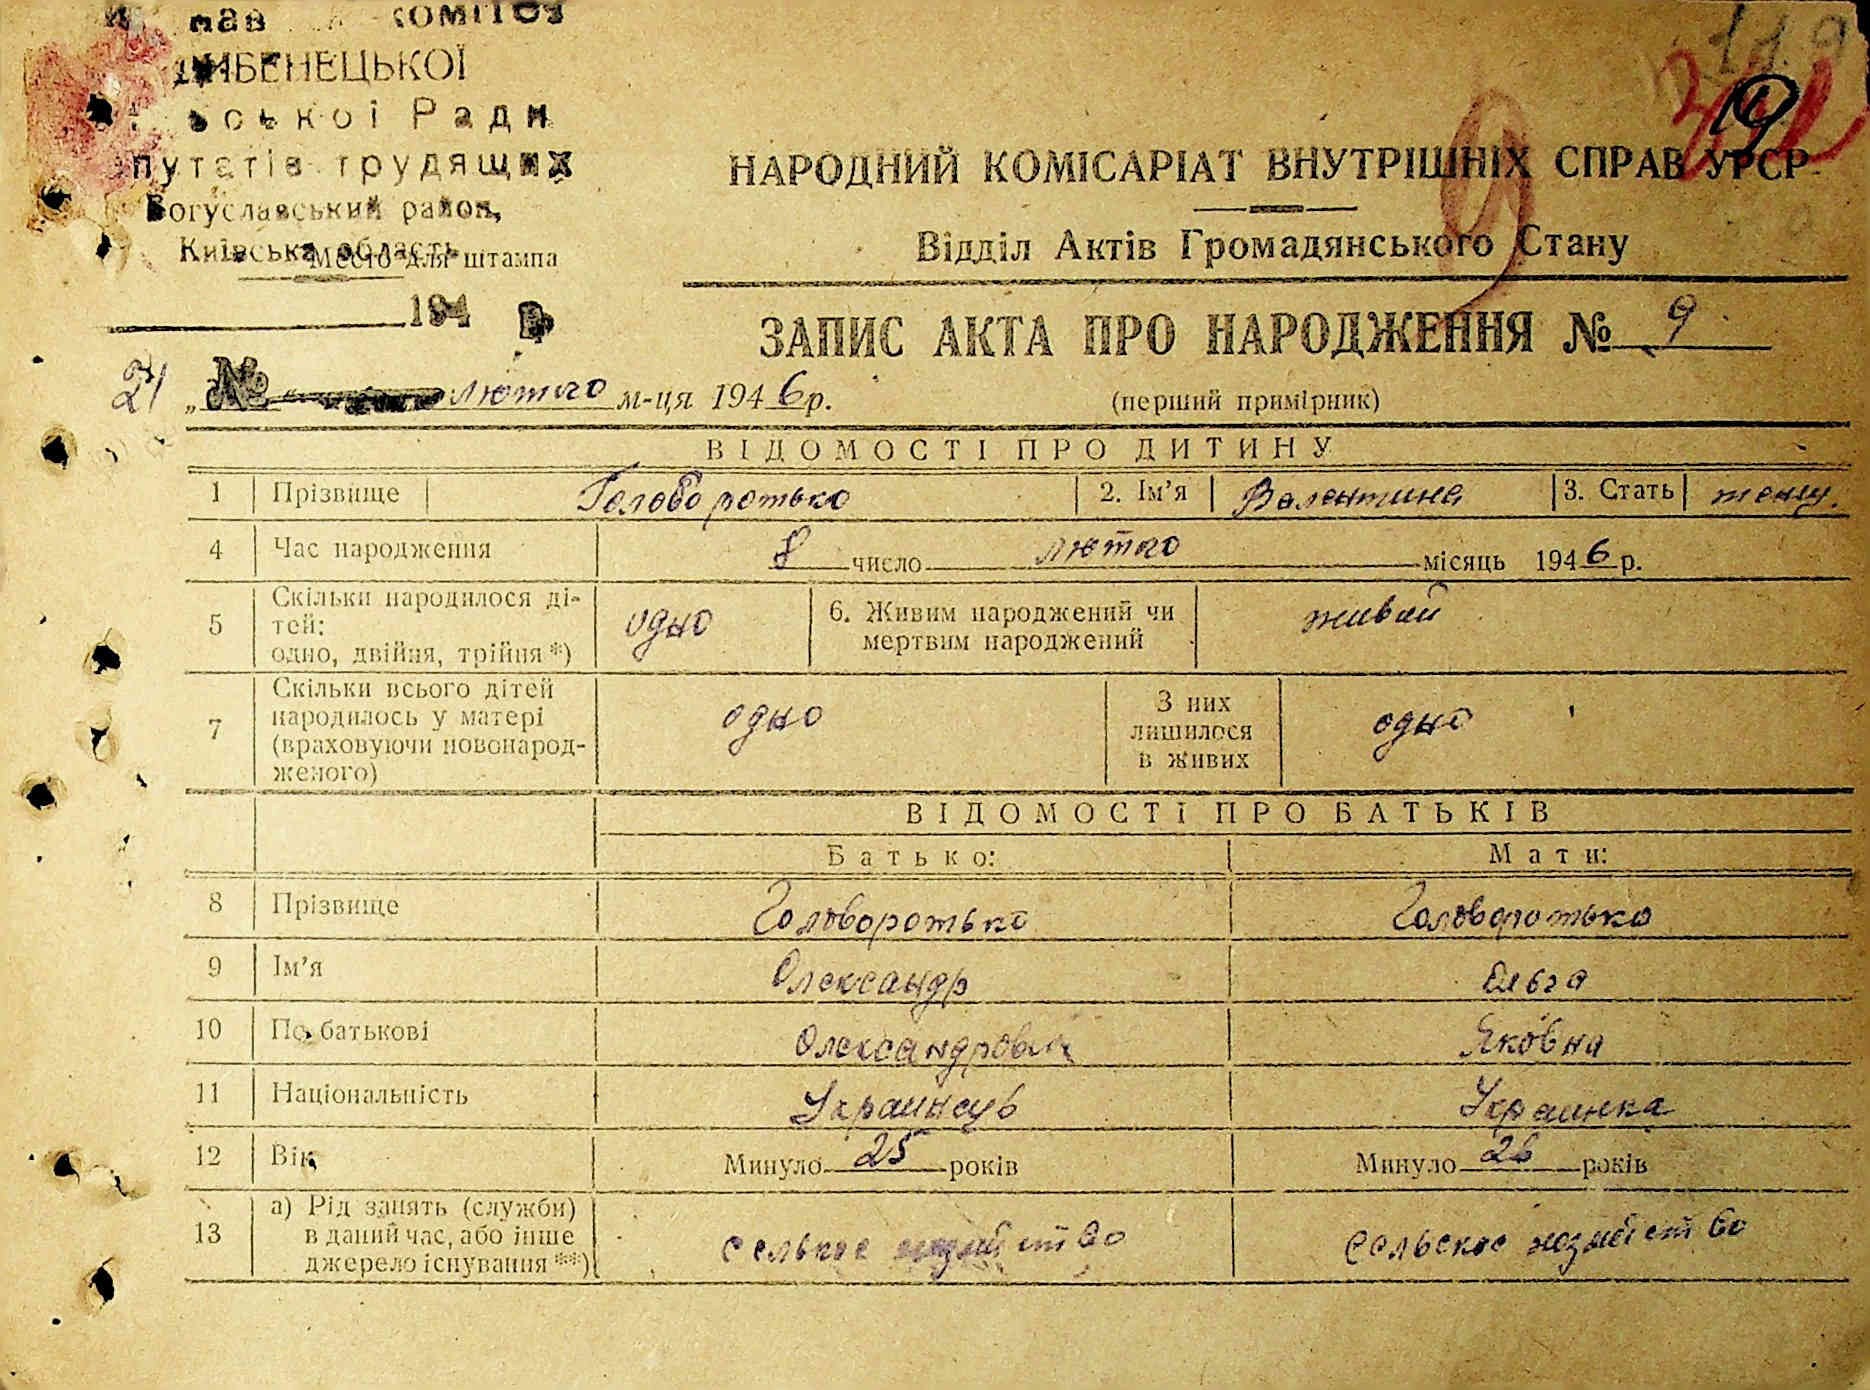 ИБЕНЕЦЬКОЇ
ської Ради
путатів трудящих
Богуславський район,
Київська область
Место для штампа
194
119
19
НАРОДНИЙ КОМІСАРІАТ ВНУТРІШНІХ СПРАВ УРСР
Відділ Актів Громадянського Стану
ЗАПИС АКТА ПРО НАРОДЖЕННЯ № 9
(перший примірник)
21 № лютого м-ця 1946 р.
ВІДОМОСТІ ПРО ДИТИНУ
1 Прізвище Головоротько 2. Ім'я Валентина 3. Стать
4 Час народження 8 число лютого місяць 1946 р.
5 Скільки народилося ді-
тей:
одно, двійня, трійня *) одно 6. Живим народжений чи
мертвим народжений живий
7 Скільки всього дітей
народилось у матері
(враховуючи новонарод-
женого) одно З них
лишилося
в живих одно
ВІДОМОСТІ ПРО БАТЬКІВ
Батько: Мати:
8 Прізвище Головоротько Головоротько
9 Ім'я Олександр Ольга
10 По батькові Олександрович Яковна
11 Національність Украинець Украинка
12 Вік Минуло 25 років Минуло 26 років
13 а) Рід занять (служби)
в даний час, або інше
джерело існування **) сельское сельское